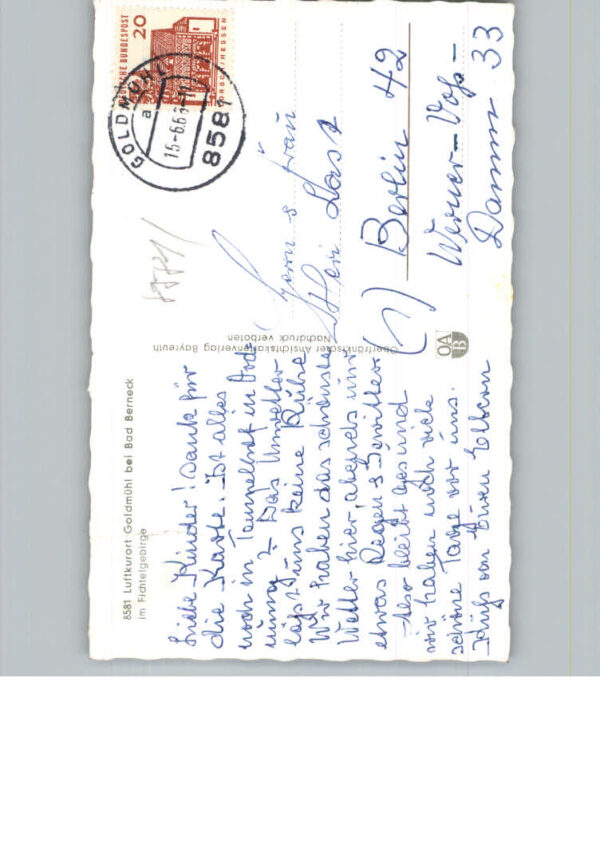 8581 Luftkurort Goldmühl bei Bad Berneck
im Fichtelgebirge
Liebe Kinder! Dank für
die Karte. Ist alles
noch in Tempelhof in Ord-
nung? Das Unwetter
läßt uns keine Ruhe
Wir haben das schönste
Wetter hier abgesehen
etwas Regen & Gewitter
Also bleibt gesund
wir haben noch viele
schöne Tage vor uns.
Küße von Euren Eltern
Oberfränkischer Ansichtskartenverlag Bayreuth
Nachdruck verboten
OA
B
DEUTSCHE BUNDESPOST
20
LORSCH/HESSEN
GOLDMÜHL
a
8581
Herrn & Frau
(1) Berlin 42
Werner-Voß-
Damm 33